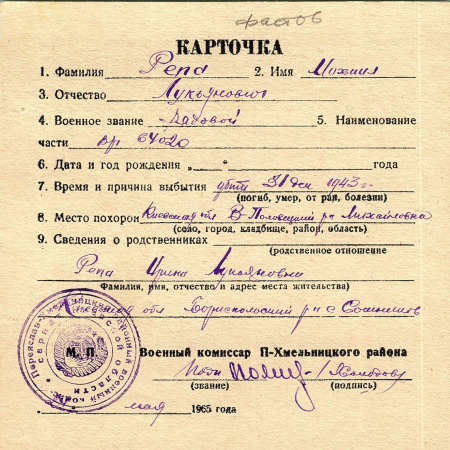 фастов
КАРТОЧКА
1. Фамилия Репа 2. Имя Михаил
3. Отчество Лукьянович
4. Военное звание рядовой 5. Наименование
части 64020
6. Дата и год рождения „ “ года
7. Время и причина выбытия убит 31 дек 1943 г.
(погиб, умер, от ран, болезни)
8. Место похорон Киевская В-Половецкий р-н Михайловка
(село, город, кладбище, район, область)
9. Сведения о родственниках
(родственное отношение
Репа Ирина Лукьяновна
Фамилия, имя, отчество и адрес места жительства)
обл Бориспольский р-н с
М. П. Военный комиссар П-Хмельницкого района
(звание) (подпись)
„ “ мая 1965 года